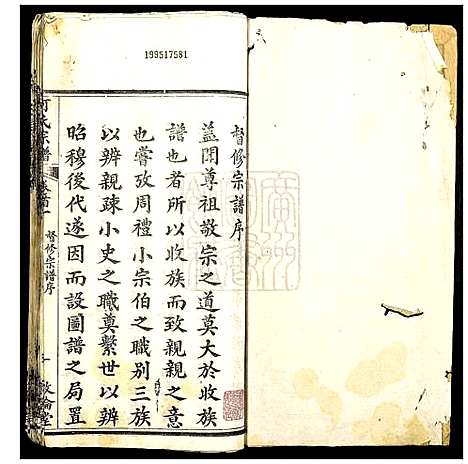 199517581
督修宗譜序
蓋聞尊祖敬宗之道莫大於收族
譜也者所以收族而致親親之意
也嘗攷周禮小宗伯之職別三族
以辨親疎小史之職奠繫世以辨
昭穆後代遂因而設圖譜之局置
氏宗譜
卷首
督修宗譜序
一
敦倫堂